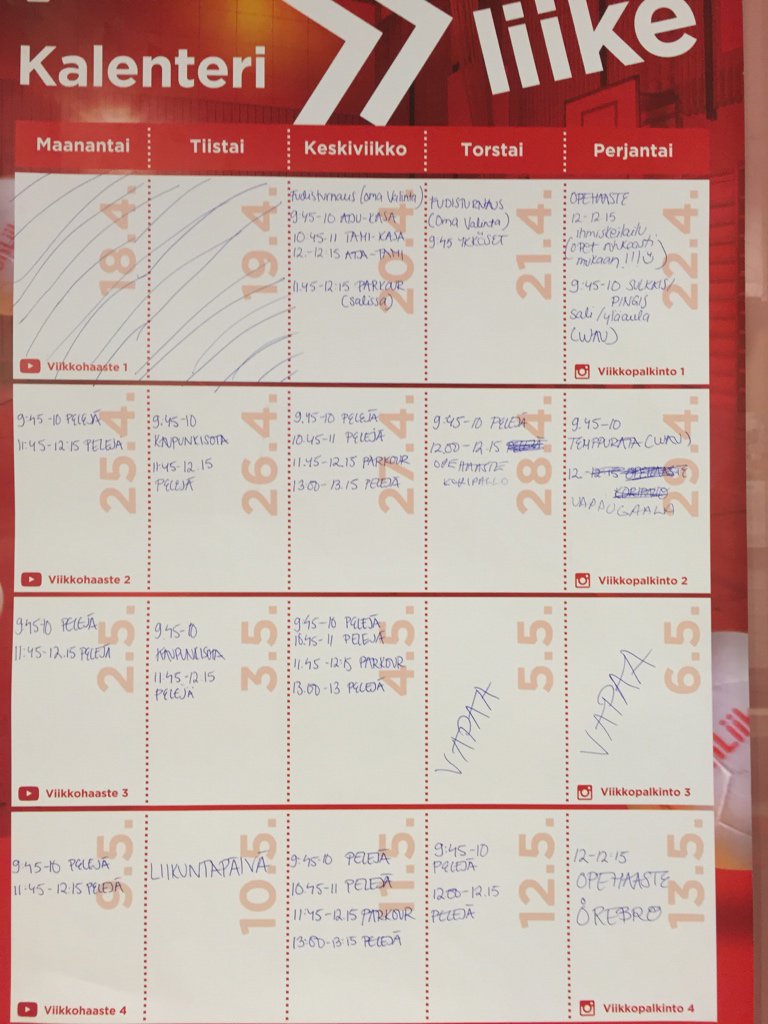 Kalenteri
liike
Maanantai Tiistai Keskiviikko Torstai Perjantai
18.4.
Viikkohaaste 1
19.4.
20.4.
Fudisturnaus (oma valinta)
9.45-10 ADU-KASA
10.45-11 TAMI-KASA
12.-12.15
11.45-12.15 PARKOUR
(salissa)
21.4.
FUDISTURNAUS
(Oma Valinta)
9.45 YKKÖSET
22.4.
OPEHAASTE
12-12.15
ihmiskeilailu
(opet
mukaan!!!)
9.45-10 SULKKIS/
PINGIS
sali/yläaula
(WAU)
Viikkopalkinto 1
25.4.
9.45-10 PELEJÄ
11.45-12.15 PELEJÄ
Viikkohaaste 2
26.4.
9.45-10
KAUPUNKISOTA
11.45-12.15
PELEJÄ
27.4.
9.45-10 PELEJÄ
10.45-11 PELEJÄ
11.45-12.15 PARKOUR
13.00-13.15 PELEJÄ
28.4.
9.45-10 PELEJÄ
12.00-12.15 PELEJÄ
OPEHAASTE
KORIPALLO
29.4.
9.45-10
TEMPPURATA (WAU)
12.-12.15 OPEHAASTE
KORIPALLO
VAPPUGAALA
Viikkopalkinto 2
2.5.
9.45-10 PELEJÄ
11.45-12.15 PELEJÄ
Viikkohaaste 3
3.5.
9.45-10
KAUPUNKISOTA
11.45-12.15
PELEJÄ
4.5.
9.45-10 PELEJÄ
10.45-11 PELEJÄ
11.45-12.15 PARKOUR
13.00-13 PELEJÄ
5.5.
VAPAA
6.5.
VAPAA
Viikkopalkinto 3
9.5.
9.45-10 PELEJÄ
11.45-12.15 PELEJÄ
Viikkohaaste 4
10.5.
LIIKUNTAPÄIVÄ
11.5.
9.45-10 PELEJÄ
10.45-11 PELEJÄ
11.45-12.15 PARKOUR
13.00-13.15 PELEJÄ
12.5.
9.45-10
PELEJÄ
12.00-12.15
PELEJÄ
13.5.
12-12.15
OPEHAASTE
ÖREBRO
Viikkopalkinto 4